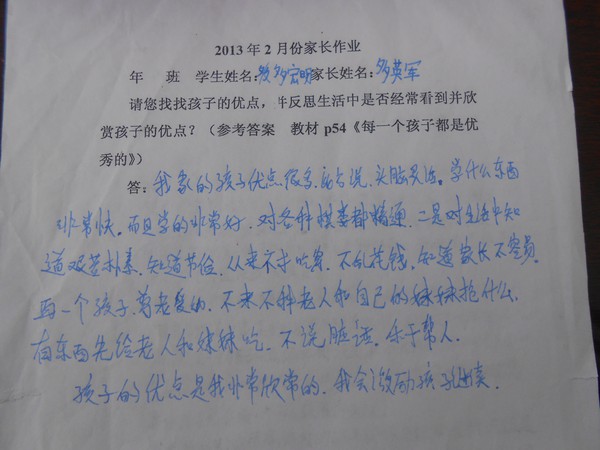 2013 年 2 月份家长作业
年 班 学生姓名:多宏明家长姓名:多英军
请您找找孩子的优点，并反思生活中是否经常看到并欣
赏孩子的优点？（参考答案 教材 p54《每一个孩子都是优
秀的》）
答: 我家的孩子优点很多.说.头脑灵活。学什么东西
非常快。而且学的非常好.对各种棋类都精通.二是对生活中知
道艰苦朴素.知道节俭.从来不吃.不乱花钱.知道家长不容易。
一个孩子.尊老爱幼.不来不和老人和自己的妹妹抢什么.
有东西先给老人和妹妹吃.不说脏话.乐于帮人.
孩子的优点是我非常欣常的.我会激励孩子